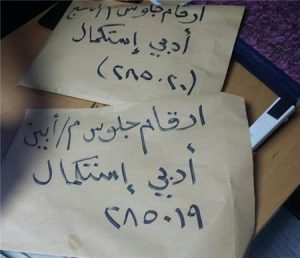 ارقام جلوس م/أبين
أدبي إستكمال
(٢٨٥٠٢٠)
ارقام جلوس م/أبين
أدبي إستكمال
٢٨٥٠١٩